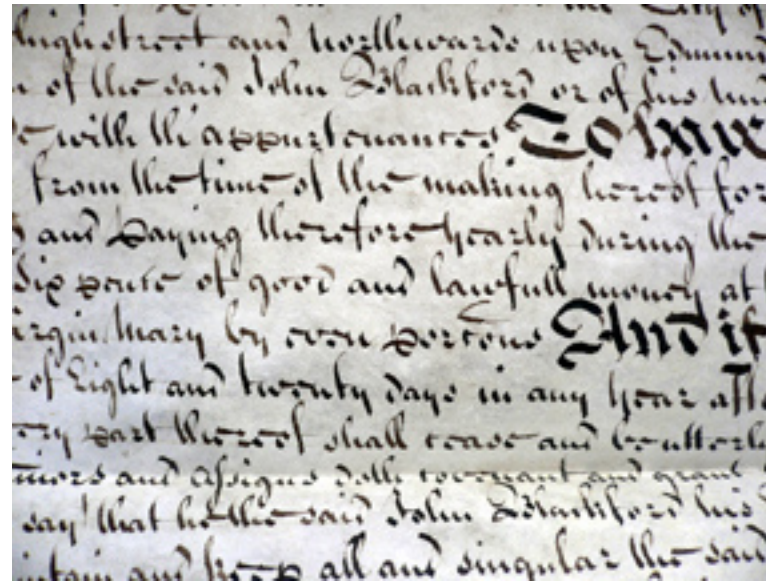 the City of
highstreet and northwards upon Edmund
of the said John Blackford or of his
with th'appurtenances To have
from the time of the making hereof for
and paying therefore yearly during the
Six pence of good and lawfull money at
Virgin Mary by even porc͠ons And if
of Eight and twenty days in any year aft
ery part thereof shall cease and be utterly
and Assigns doth covenant and grant
say that he the said John Blackford his
intain and keep all and singular the said